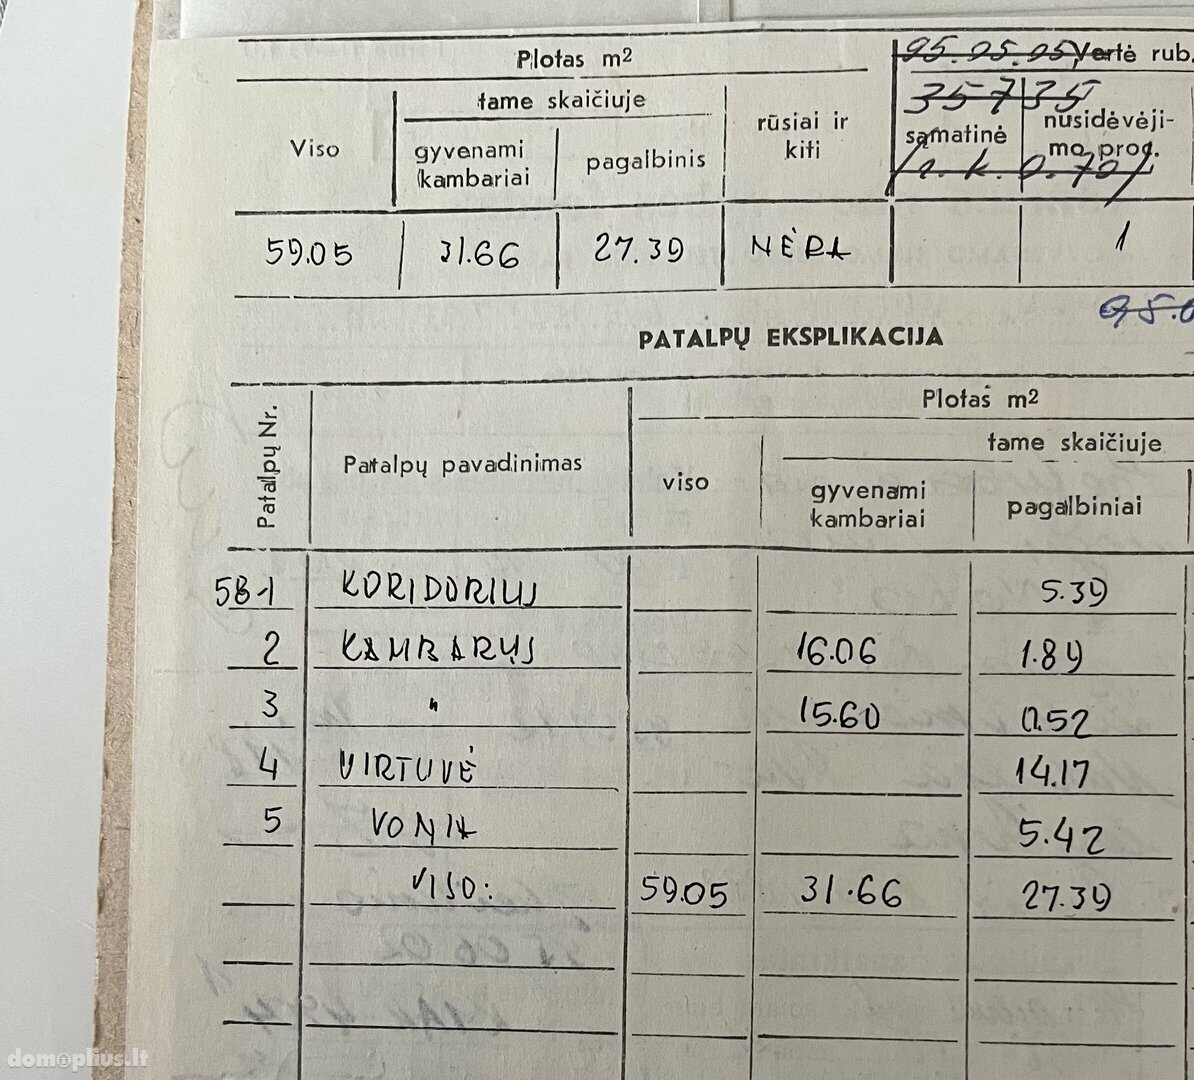 Plotas m2 95.05.05 Vertė rub.
35735
tame skaičiuje
Viso gyvenami kambariai pagalbinis rūsiai ir kiti sąmatinė nusidėvėji-mo proc.
59.05 31.66 27.39 NĖRA 1
PATALPŲ EKSPLIKACIJA
Patalpų Nr. Patalpų pavadinimas Plotas m2
tame skaičiuje
viso gyvenami kambariai pagalbiniai
58-1 KORIDORIUS 5.39
2 KAMBARYS 16.06 1.89
3 " 15.60 0.52
4 VIRTUVĖ 14.17
5 VONIA 5.42
VISO: 59.05 31.66 27.39
domoplius.lt